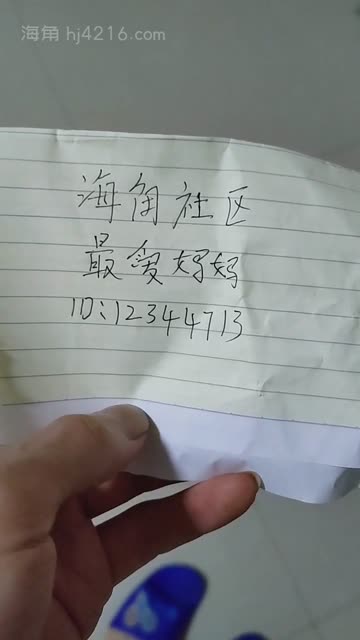 海角 hj4216.com
海角社区
最爱妈妈
ID:12344713